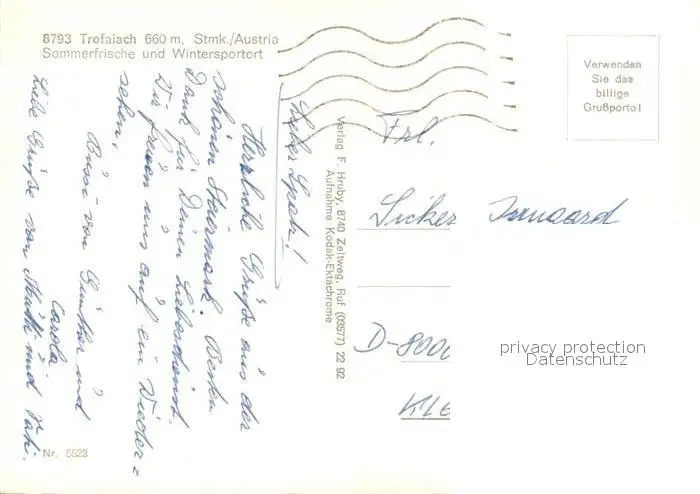 8793 Trofaiach 660 m, Stmk./Austria
Sommerfrische und Wintersportort
Verwenden
Sie das
billige
Grußporto!
Herzliche Grüße aus der
schönen Steiermark. Besten
Dank für Deinen Liebesdienst.
Wir freuen uns auf ein Wieder=
sehen.
Bussi von Günther und
Carola
Liebe Grüße von Mutti und Vati.
Verlag F. Hruby, 8740 Zeltweg, Ruf (03577) 22 92
Aufnahme Kodak-Ektachrome
Frl.
Sicker Irmgard
D-8000
privacy protection
Datenschutz
Nr. 5523